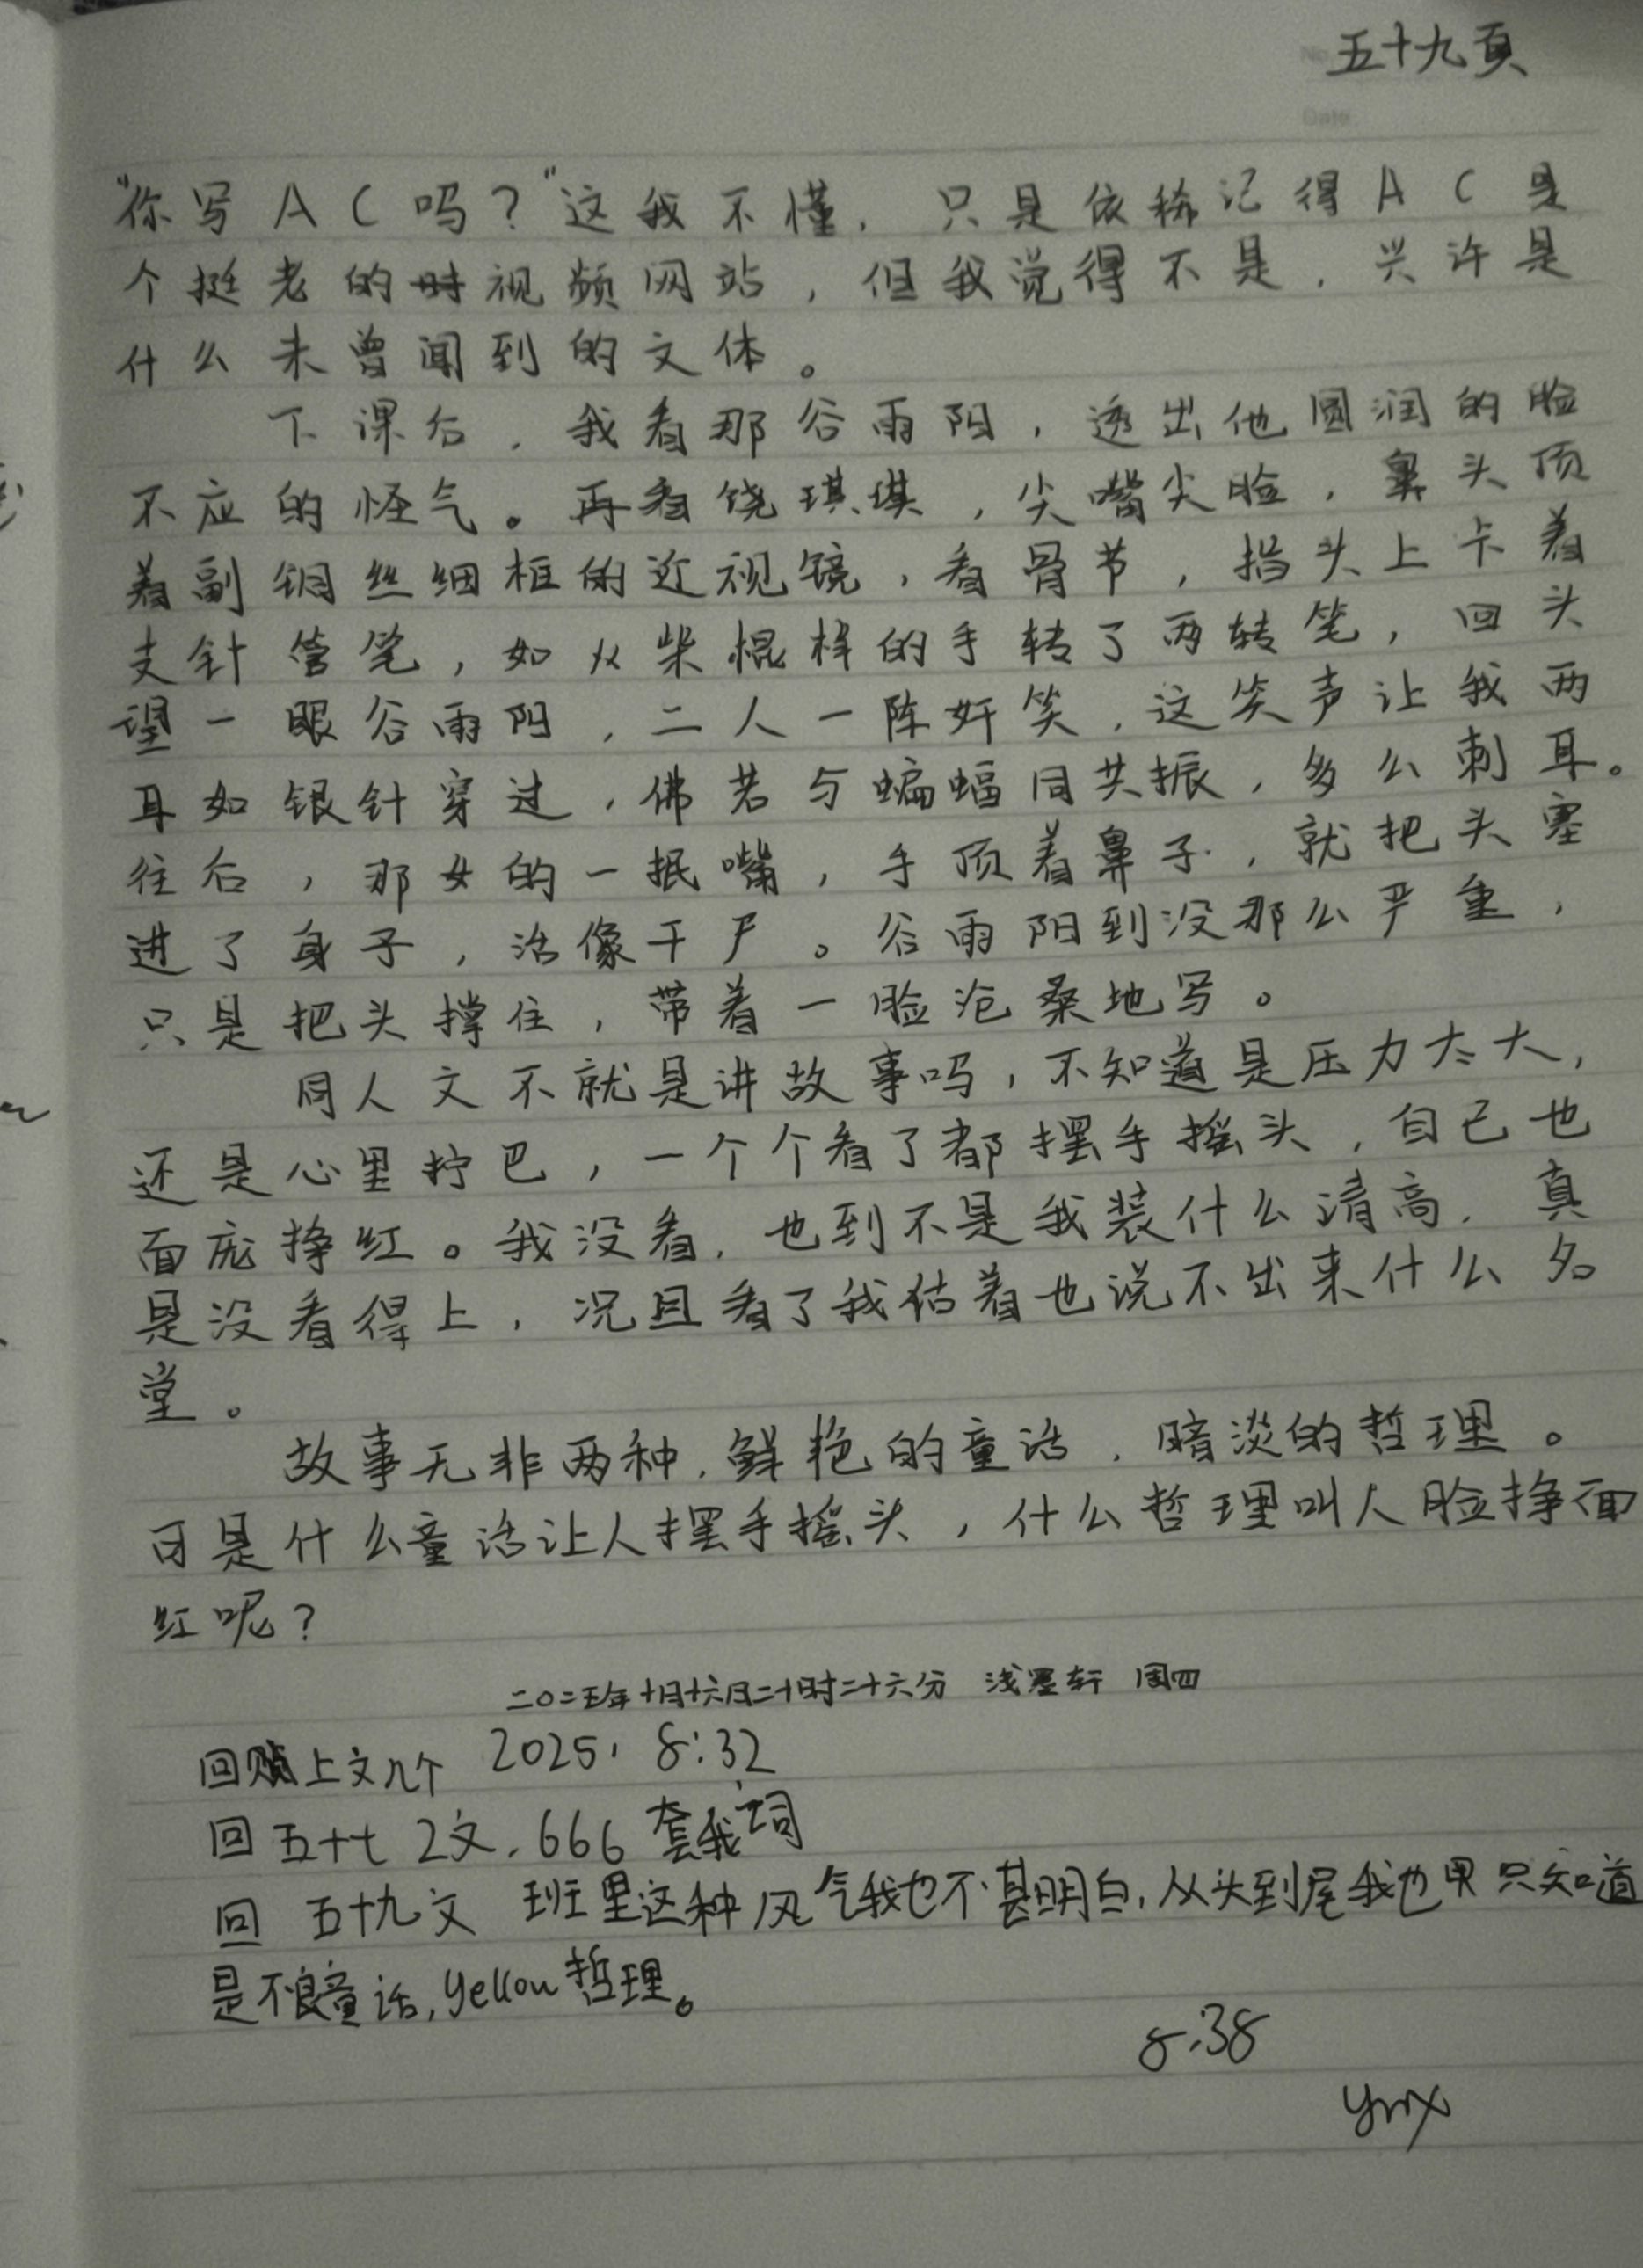 五十九頁
"你写AC吗？"这我不懂，只是依稀记得AC是
个挺老的视频网站，但我觉得不是，兴许是
什么未曾闻到的文体。
下课后，我看那谷雨阳，透出他圆润的脸
不应的怪气。再看饶琪琪，尖嘴尖脸，鼻头顶
着副铜丝细框的近视镜，看骨节，指头上卡着
支针管笔，如火柴棍样的手转了两转笔，回头
望一眼谷雨阳，二人一阵奸笑，这笑声让我两
耳如银针穿过，佛若与蝙蝠同共振，多么刺耳。
往后，那女的一抿嘴，手顶着鼻子，就把头塞
进了身子，活像干尸。谷雨阳到没那么严重，
只是把头撑住，带着一脸沧桑地写。
同人文不就是讲故事吗，不知道是压力太大，
还是心里拧巴，一个个看了都摆手摇头，自己也
面庞挣红。我没看，也到不是我装什么清高，真
是没看得上，况且看了我估着也说不出来什么名
堂。
故事无非两种，鲜艳的童话，暗淡的哲理。
可是什么童话让人摆手摇头，什么哲理叫人脸挣面
红呢？
二〇二五年十月十六日二十时二十六分 浅墨轩 周四
回 上文几个 2025，8:32
回五十七 2文，666 套我词
回 五十九文 班里这种风气我也不甚明白，从头到尾我也 只知道
是不良童话，yellow哲理。
8:38
ynx